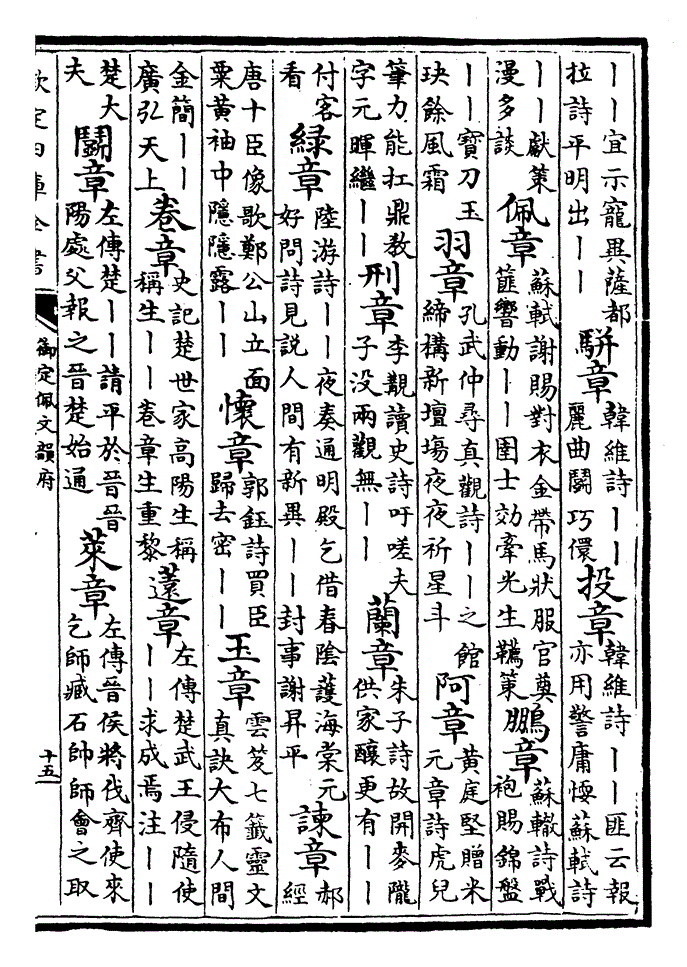 丨丨宜示寵異薩都
拉詩平明出丨丨
駢章
韓維詩丨丨
麗曲鬭巧儇
投章
韓維詩丨丨匪云報
亦用警庸㥬蘇軾詩
丨丨獻策
漫多談
佩章
蘇軾謝賜對衣金帶馬狀服官奠
篚響動丨丨圉士効牽光生韉策
鵬章
蘇轍詩戰
袍賜錦盤
丨丨寶刀玉
玦餘風霜
羽章
孔武仲尋真觀詩丨丨之館
締構新壇塲夜夜祈星斗
阿章
黄庭堅贈米
元章詩虎兒
筆力能扛鼎敎
字元暉繼丨丨
刑章
李覯讀史詩吁嗟夫
子没兩觀無丨丨
蘭章
朱子詩故開麥隴
供家釀更有丨丨
付客
看
緑章
陸游詩丨丨夜奏通明殿乞借春陰護海棠元
好問詩見説人間有新異丨丨封事謝昇平
諫章
郝
經
唐十臣像歌鄭公山立面
粟黄袖中隱隱露丨丨
懷章
郭鈺詩買臣
歸去密丨丨
玉章
雲笈七籤靈文
真訣大布人間
金簡丨丨
廣弘天上
卷章
史記楚世家高陽生稱
稱生丨丨卷章生重黎
薳章
左傳楚武王侵隨使
丨丨求成焉注丨丨
楚大
夫
鬭章
左傳楚丨丨請平於晉晉
陽處父報之晉楚始通
萊章
左傳晉侯將伐齊使來
乞師臧石帥師會之取
欽定四庫全書
御定佩文韻府
十五